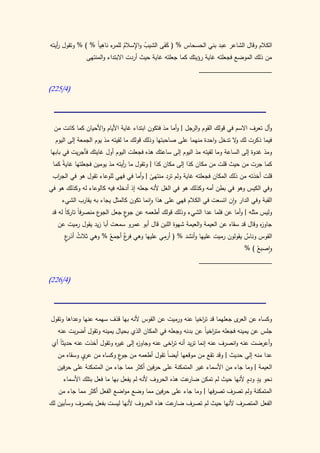 الكلام وقال الشاعر عبد بني الحسحاس % ( كفى الشيبُ والإسلامُ للمرء ناهياً % ) % وتقول رأيته
من ذلك الموضع فجعلته غاية رؤيتك كما جعلته غاية حيث أردت الابتداء والمنتهى
(225/4)
وأل تعرف الاسم في قولك القوم والرجل | وأما مذ فتكون ابتداء غاية الأيام والأحيان كما كانت من
فيما ذكرت لك ولا تدخل واحدة منهما على صاحبتها وذلك قولك ما لقيته مذ يوم الجمعة إلى اليوم
ومذ غدوة إلى الساعة وما لقيته مذ اليوم إلى ساعتك هذه فجعلت اليوم أول غايتك فأجريت في بابها
كما جرت من حيث قلت من مكان كذا إلى مكان كذا | وتقول ما رأيته مذ يومين فجعلتها غاية كما
قلت أخذته من ذلك المكان فجعلته غاية ولم ترد منتهىً | وأما في فهي للوعاء تقول هو في الجراب
وفي الكيس وهو في بطن أمه وكذلك هو في الغل لأنه جعله إذ أدخله فيه كالوعاء له وكذلك هو في
القبة وفي الدار وإن اتسعت في الكلام فهي على هذا وإنما تكون كالمثل يجاء به يقارب الشيء
وليس مثله | وأما عن فلما عدا الشيء وذلك قولك أطعمه عن جوع جعل الجوع منصرفاً تاركاً له قد
جاوزه وقال قد سقاه عن العيمة والعيمة شهوة اللبن قال أبو عمرو سمعت أبا زيد يقول رميت عن
القوس وناسٌ يقولون رميت عليها وأنشد % ( أرمي عليها وهي فرعٌ أجمعُ % وهي ثلاثُ أذرعٍ
وإصبعُ ) %
(226/4)
وكساه عن العرى جعلهما قد تراخيا عنه ورميت عن القوس لأنه بها قذف سهمه عنها وعداها وتقول
جلس عن يمينه فجعله متراخياً عن بدنه وجعله في المكان الذي بحيال يمينه وتقول أضربت عنه
وأعرضت عنه وانصرف عنه إنما تريد أنه تراخى عنه وجاوزه إلى غيره وتقول أخذت عنه حديثاً أي
عدا منه إلي حديث | وقد تقع من موقعها أيضاً تقول أطعمه من جوع وكساه من عري وسقاه من
العيمة | وما جاء من الأسماء غير المتمكنة على حرفين أكثر مما جاء من المتمكنة على حرفين
نحو يدٍ ودمٍ لأنها حيث لم تمكن ضارعت هذه الحروف لأنه لم يفعل بها ما فعل بتلك الأسماء
المتمكنة ولم تصرف تصرفها | وما جاء على حرفين مما وضع مواضع الفعل أكثر مما جاء من
الفعل المتصرف لأنها حيث لم تصرف ضارعت هذه الحروف لأنها ليست بفعل يتصرف وسأبين لك